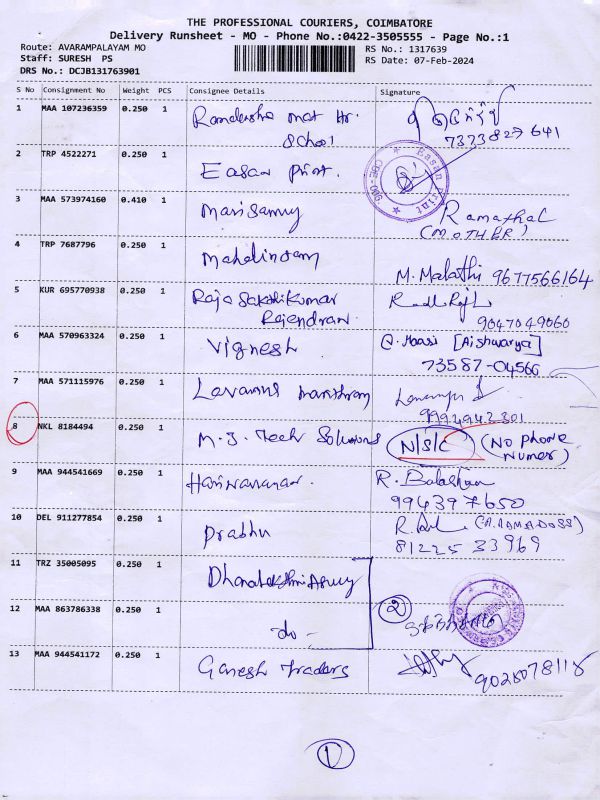 THE PROFESSIONAL COURIERS, COIMBATORE
Delivery Runsheet - MO - Phone No.:0422-3505555 - Page No.:1
Route: AVARAMPALAYAM MO
Staff: SURESH PS
DRS No.: DCJB131763901
RS No.: 1317639
RS Date: 07-Feb-2024
S No Consignment No Weight PCS Consignee Details Signature
1 MAA 107236359 0.250 1 mat Hr.
School
7373827641
2 TRP 4522271 0.250 1 Easan Print.
Easan Print
3 MAA 573974160 0.410 1 Ramathal
(MOTHER)
4 TRP 7687796 0.250 1 M. Malathi 9677566164
5 KUR 695770938 0.250 1 Raja
Rajendran
9047049060
6 MAA 570963324 0.250 1 Vignesh [Aishwarya]
73587-04566
7 MAA 571115976 0.250 1
9994943301
8 NKL 8184494 0.250 1 M.J. Tech Solutions N/S/C (No Phone
Numer)
9 MAA 944541669 0.250 1 R.
994397650
10 DEL 911277854 0.250 1 Prabhu (A. RAMADOSS)
81225 33969
11 TRZ 35005095 0.250 1
12 MAA 863786338 0.250 1 do - 2
13 MAA 944541172 0.250 1 Ganesh Traders
9025078118
1